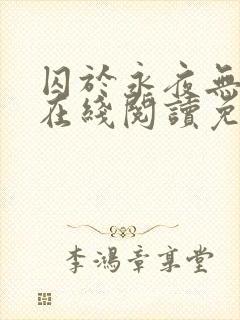 囚於永夜無
在綫閱讀免
李鴻章享堂